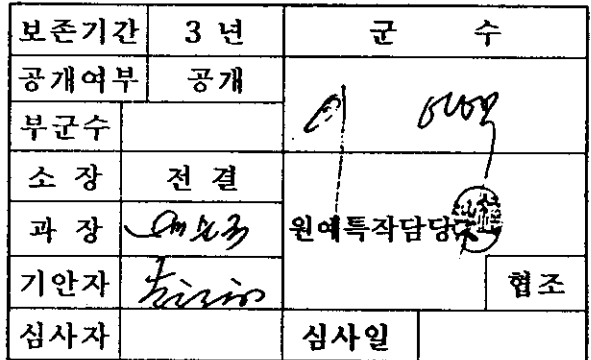 보존기간 3 년 군 수
공개여부 공개
부군수
소 장 전 결
과 장 원예특작담당
기안자 협조
심사자 심사일